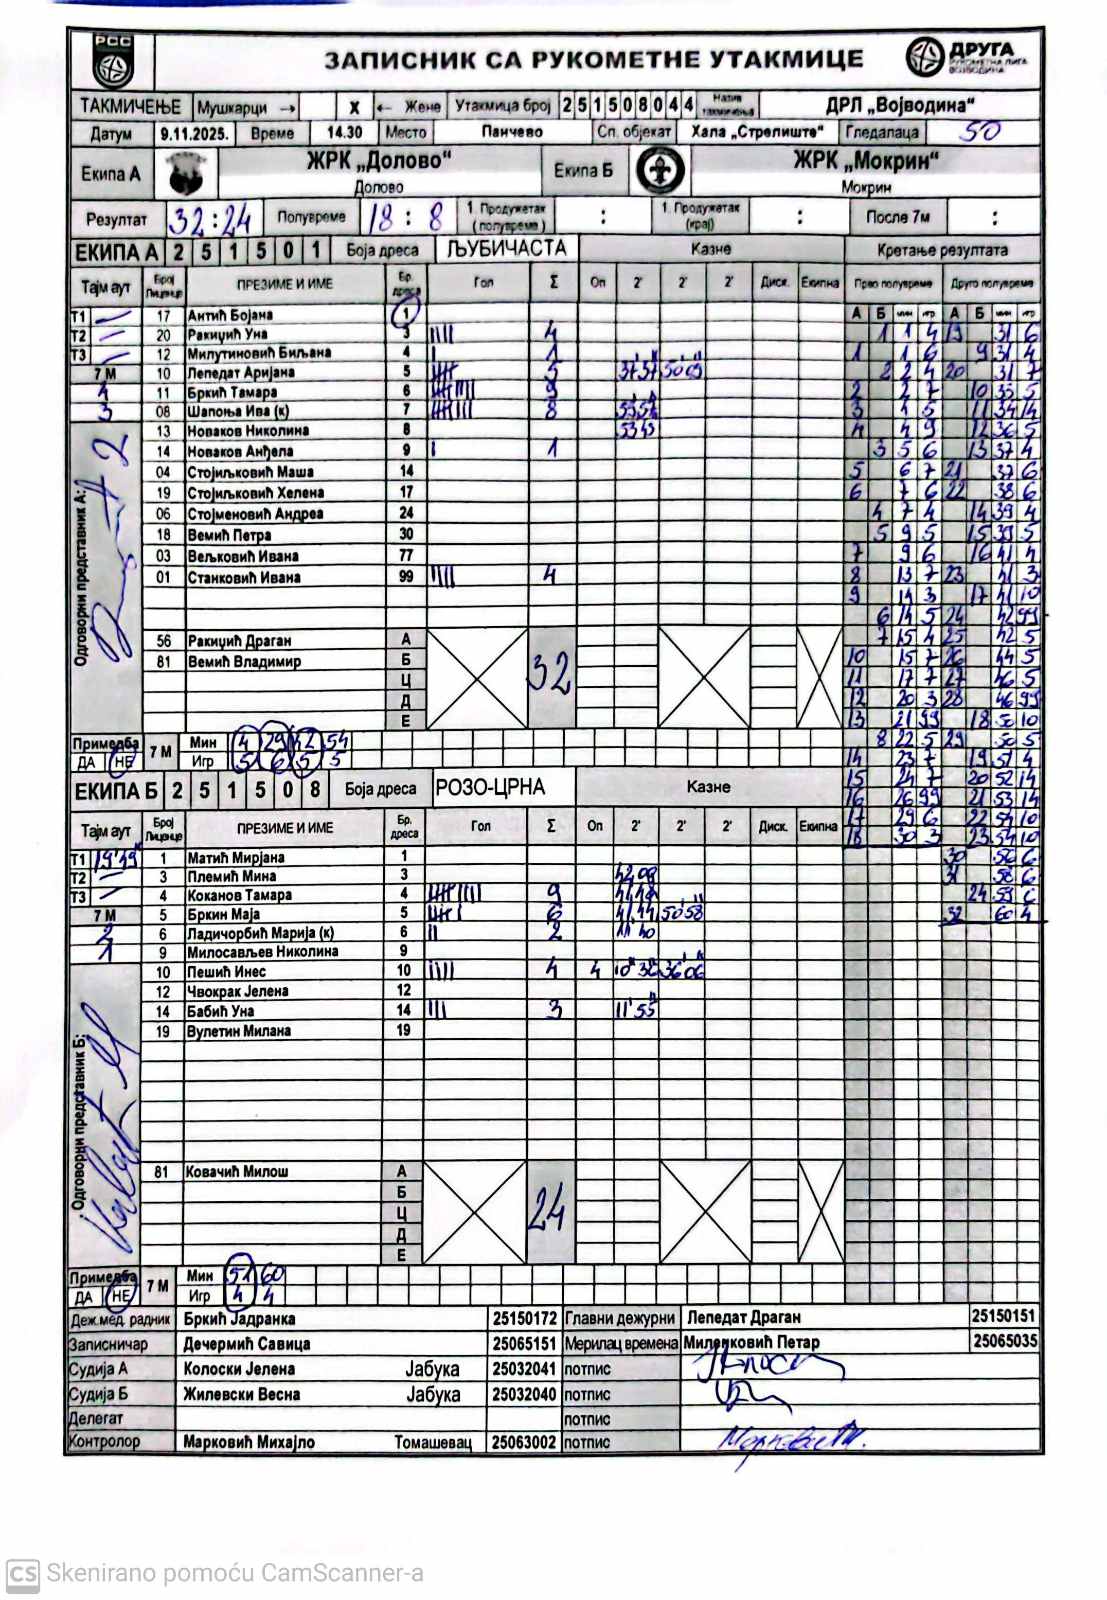 РСС
ЗАПИСНИК СА РУКОМЕТНЕ УТАКМИЦЕ
ДРУГА
РУКОМЕТНА ЛИГА
ВОЈВОДИНА
ТАКМИЧЕЊЕ Мушкарци → X ← Жене Утакмица број 2 5 1 5 0 8 0 4 4 Назив такмичења ДРЛ „Војводина“
Датум 9.11.2025. Време 14.30 Место Панчево Сп. објекат Хала „Стрелиште“ Гледалаца 50
Екипа А ЖРК „Долово“ Долово Екипа Б ЖРК „Мокрин“ Мокрин
Резултат 32:24 Полувреме 18 : 8 1. Продужетак (полувреме) : 1. Продужетак (крај) : После 7м :
ЕКИПА А 2 5 1 5 0 1 Боја дреса ЉУБИЧАСТА Казне Кретање резултата
Тајм аут Број Лиценце ПРЕЗИМЕ И ИМЕ Бр. дреса Гол Σ Оп 2' 2' 2' Диск. Екипна Прво полувреме Друго полувреме
А Б мин игр А Б мин игр
Т1 17 Антић Бојана 1
Т2 20 Ракиџић Уна 3 4
Т3 12 Милутиновић Биљана 4 1
7 М 10 Лепедат Аријана 5 5 37'37 50 09
4 11 Бркић Тамара 6 9
3 08 Шапоња Ива (к) 7 8
13 Новаков Николина 8
14 Новаков Анђела 9 1
04 Стојиљковић Маша 14
19 Стојиљковић Хелена 17
06 Стојменовић Андреа 24
18 Вемић Петра 30
03 Вељковић Ивана 77
01 Станковић Ивана 99 4
Одговорни представник А:
56 Ракиџић Драган А
81 Вемић Владимир Б
Ц
Д
Е
32
1 1 4 19 31 6
1 1 6 9 31 4
2 2 4 20 31 7
2 2 7 10 33 5
3 4 5 11 34 14
4 4 9 12 36 5
3 5 6 13 37 4
5 6 7 21 37 6
6 7 6 22 38 6
4 7 4 14 39 4
5 9 5 15 39 5
7 9 6 16 41 4
8 13 7 23 41 3
9 14 3 17 41 10
6 14 5 24 42 99
7 15 4 25 42 5
10 15 7 26 44 5
11 17 7 27 46 5
12 20 3 28 46 99
13 21 99 18 50 10
8 22 5 29 50 5
14 23 7 19 51 4
15 24 7 20 52 14
16 26 99 21 53 14
17 29 6 22 54 10
18 30 3 23 54 10
30 56 6
31 58 6
24 59 6
32 60 4
Примедба ДА НЕ 7 М Мин 4 29 42 54
Игр 5 6 5 5
ЕКИПА Б 2 5 1 5 0 8 Боја дреса РОЗО-ЦРНА Казне
Тајм аут Број Лиценце ПРЕЗИМЕ И ИМЕ Бр. дреса Гол Σ Оп 2' 2' 2' Диск. Екипна
Т1 19'49 1 Матић Мирјана 1
Т2 3 Племић Мина 3 42 09
Т3 4 Коканов Тамара 4 9
7 М 5 Бркин Маја 5 6 41 44 50 58
2 6 Ладичорбић Марија (к) 6 2
1 9 Милосављев Николина 9
10 Пешић Инес 10 4 4 10'32 36'06
12 Чвокрак Јелена 12
14 Бабић Уна 14 3 11'55
19 Вулетин Милана 19
Одговорни представник Б:
81 Ковачић Милош А
Б
Ц
Д
Е
24
Примедба ДА НЕ 7 М Мин 51 60
Игр 4 4
Деж.мед. радник Бркић Јадранка 25150172 Главни дежурни Лепедат Драган 25150151
Записничар Дечермић Савица 25065151 Мерилац времена Миленковић Петар 25065035
Судија А Колоски Јелена Јабука 25032041 потпис
Судија Б Жилевски Весна Јабука 25032040 потпис
Делегат потпис
Контролор Марковић Михајло Томашевац 25063002 потпис
CS Skenirano pomoću CamScanner-a